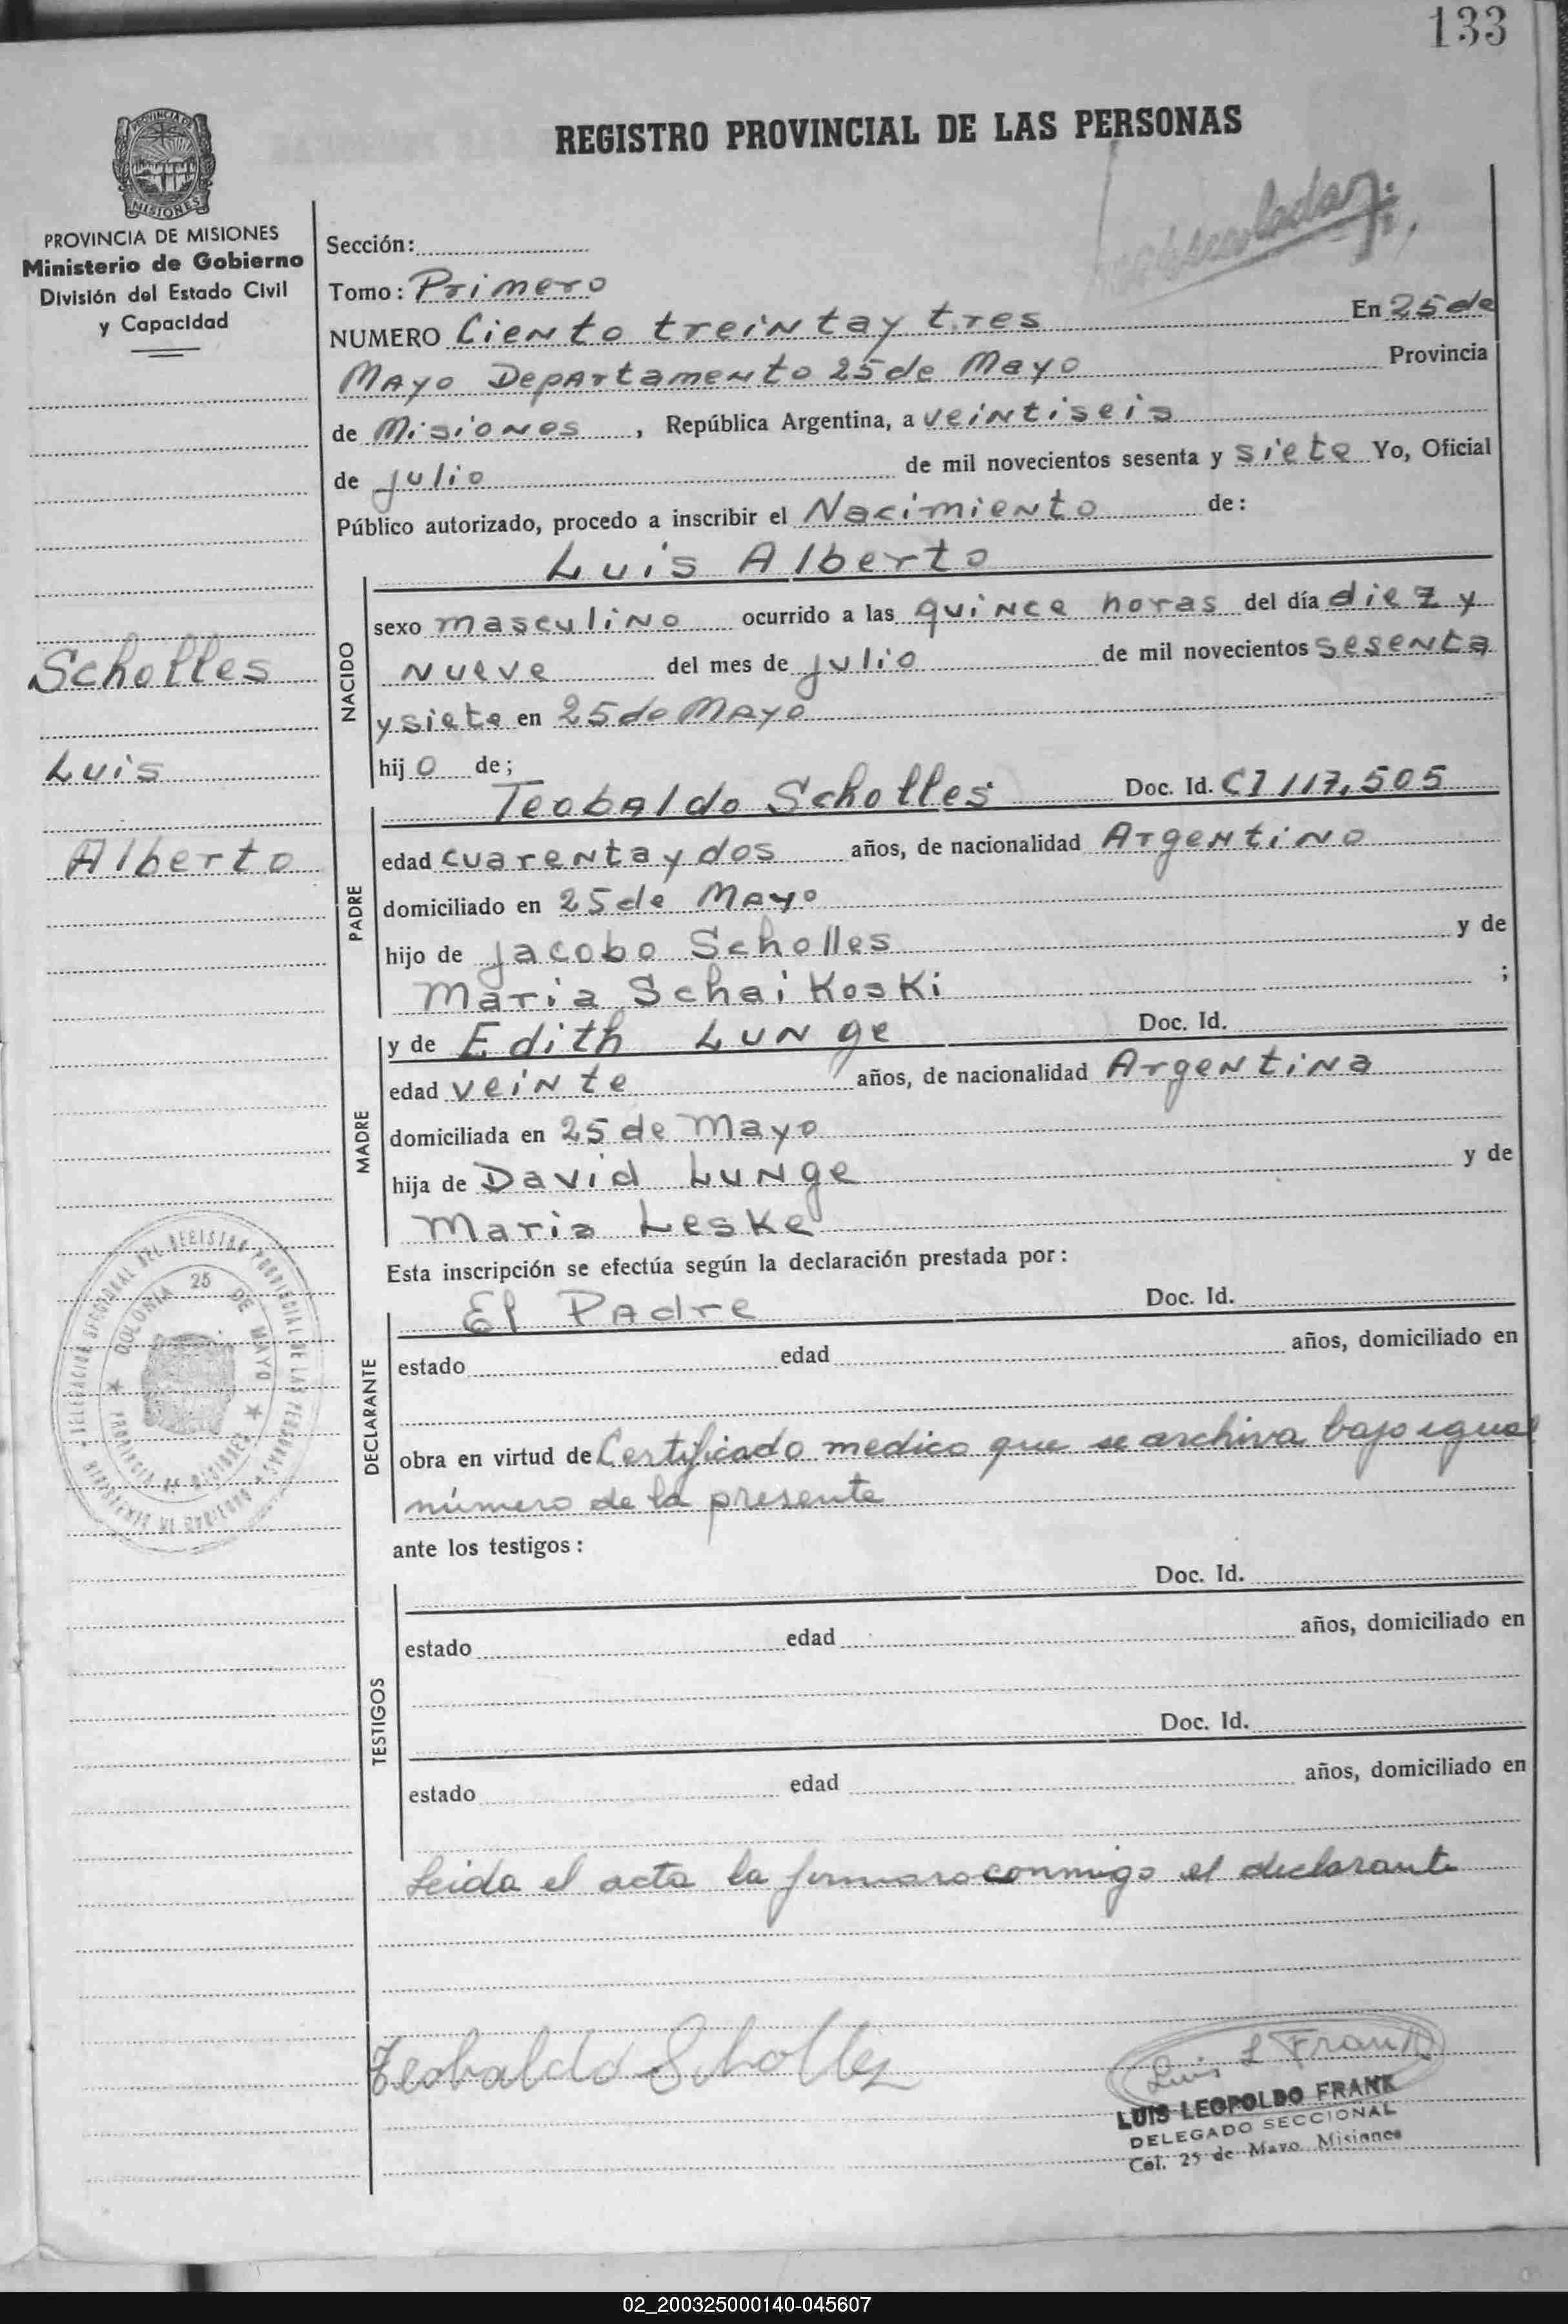 133
REGISTRO PROVINCIAL DE LAS PERSONAS
PROVINCIA DE
MISIONES
PROVINCIA DE MISIONES
Ministerio de Gobierno
División del Estado Civil
y Capacidad
Sección:
Tomo: Primero
NUMERO Ciento treinta y tres En 25 de
Mayo Departamento 25 de Mayo Provincia
de Misiones, República Argentina, a veintiseis
de julio de mil novecientos sesenta y siete Yo, Oficial
Público autorizado, procedo a inscribir el Nacimiento de:
Luis Alberto
NACIDO
sexo masculino ocurrido a las quince horas del día diez y
nueve del mes de julio de mil novecientos sesenta
y siete en 25 de Mayo
hijo de;
Scholles
Luis
Alberto
PADRE
Teobaldo Scholles Doc. Id. CI 117.505
edad cuarenta y dos años, de nacionalidad Argentino
domiciliado en 25 de Mayo
hijo de Jacobo Scholles y de
Maria Schaikoski ;
MADRE
y de Edith Lunge Doc. Id.
edad veinte años, de nacionalidad Argentina
domiciliada en 25 de Mayo
hija de David Lunge y de
Maria Leske
Esta inscripción se efectúa según la declaración prestada por:
DELEGACION SECCIONAL DEL REGISTRO PROVINCIAL DE LAS PERSONAS
COLONIA 25 DE MAYO
PROVINCIA DE MISIONES
DECLARANTE
El Padre Doc. Id.
estado edad años, domiciliado en
obra en virtud de Certificado medico que se archiva bajo igual
número de la presente
ante los testigos:
TESTIGOS
Doc. Id.
estado edad años, domiciliado en
Doc. Id.
estado edad años, domiciliado en
Leida el acta la firma conmigo el declarante
Teobaldo Scholles
Luis L Frank
LUIS LEOPOLDO FRANK
DELEGADO SECCIONAL
Col. 25 de Mayo Misiones
02_200325000140-045607